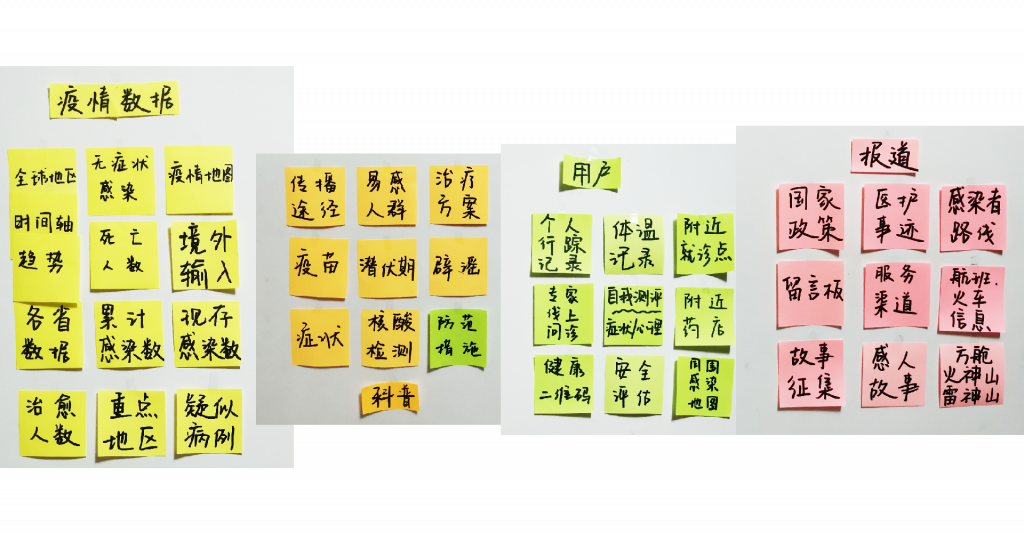 疫情数据
全球地区
无症状
感染
疫情地图
时间轴
趋势
死亡
人数
境外
输入
各省
数据
累计
感染数
现存
感染数
治愈
人数
重点
地区
疑似
病例
传播
途径
易感
人群
治疗
方案
疫苗
潜伏期
辟谣
症状
核酸
检测
防范
措施
科普
用户
个人
行踪
记录
体温
记录
附近
就诊点
专家
线上
问诊
自我测评
症状/心理
附近
药店
健康
二维码
安全
评估
周围
感染
地图
报道
国家
政策
医护
事迹
感染者
路线
留言板
服务
渠道
航班.
火车
信息
故事
征集
感人
故事
方舱
火神山
雷神山